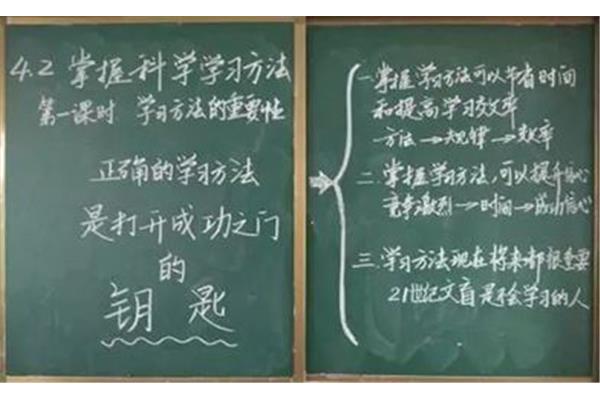 4.2 掌握科学学习方法
第一课时 学习方法的重要性
正确的学习方法
是打开成功之门
的
钥匙
一 掌握学习方法可以节省时间
和提高学习效率
方法→规律→效率
二 掌握学习方法,可以提升信心
竞争激烈→时间→成功信心
三 学习方法现在将来都很重要
21世纪文盲是不会学习的人